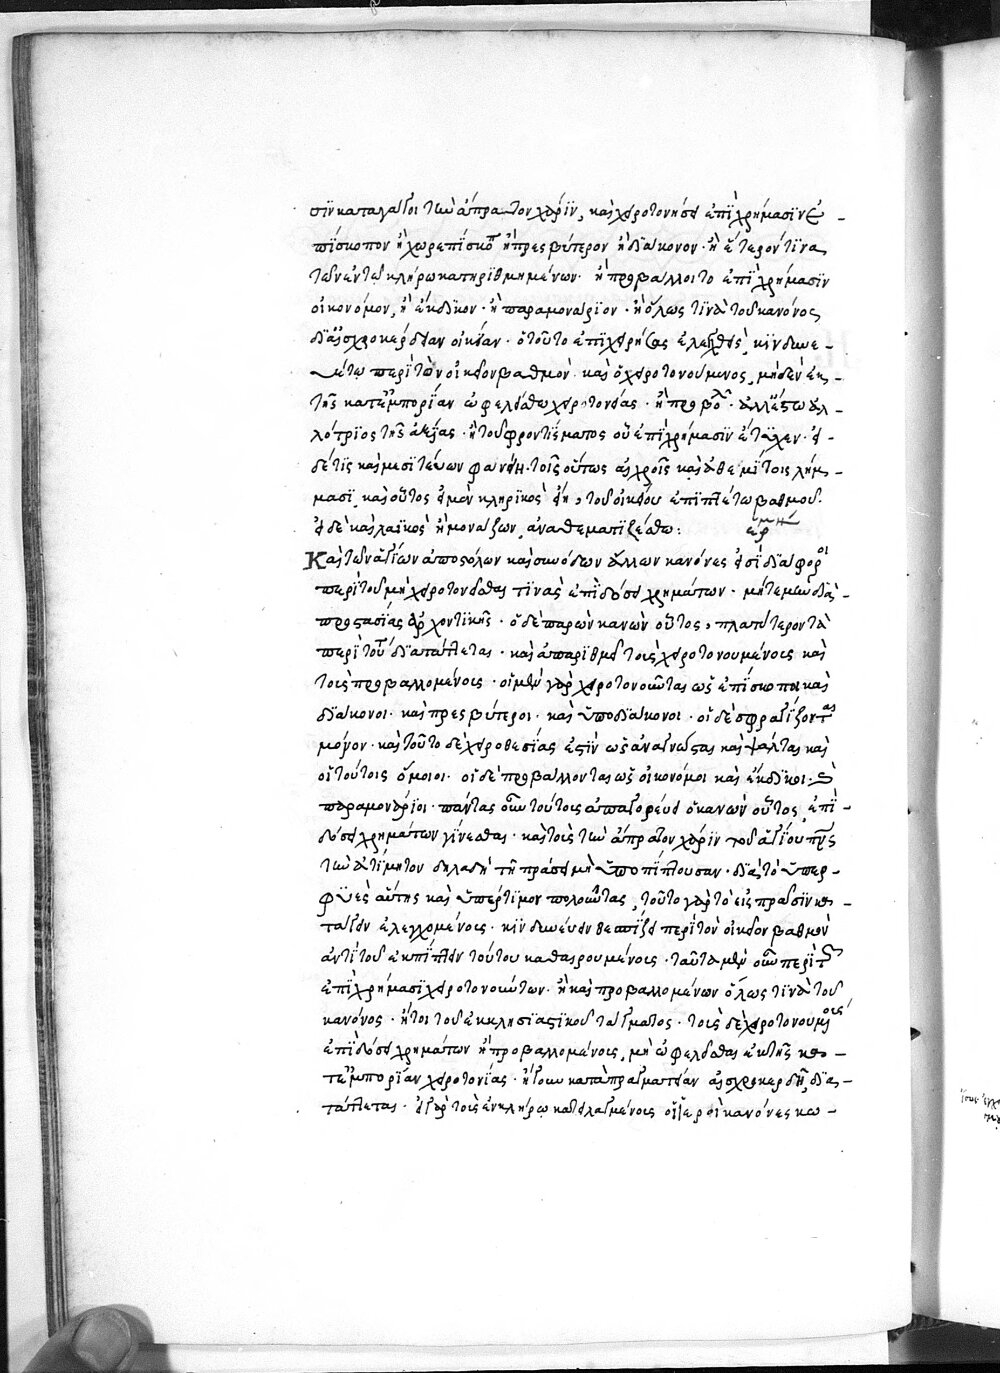 σιν καταγάγοι τὴν ἄπρατον χάριν, καὶ χειροτονήσει ἐπὶ χρήμασιν ἐ-
πίσκοπον ἢ χωρεπίσκοπον ἢ πρεσβύτερον ἢ διάκονον· ἢ ἕτερόν τινα
τῶν ἐν τῷ κλήρῳ κατηριθμημένων· ἢ προβάλλοιτο ἐπὶ χρήμασιν
οἰκονόμον, ἢ ἔκδικον· ἢ παραμονάριον· ἢ ὅλως τινὰ τοῦ κανόνος
δι' αἰσχροκέρδειαν οἰκείαν· ὁ τοῦτο ἐπιχειρήσας ἐλεγχθεὶς, κινδυνευ-
έτω περὶ τὸν οἰκεῖον βαθμόν· καὶ ὁ χειροτονούμενος, μηδὲν ἐκ
τῆς κατ' ἐμπορίαν ὠφελείσθω χειροτονίας· ἢ προβολῆς· ἀλλ' ἔστω ἀλ-
λότριος τῆς ἀξίας· ἢ τοῦ φροντίσματος οὗ ἐπὶ χρήμασιν ἔτυχεν· εἰ
δέ τις καὶ μεσιτεύων φανείη τοῖς οὕτως αἰσχροῖς καὶ ἀθεμίτοις λήμ-
μασι, καὶ οὗτος εἰ μὲν κληρικὸς εἴη, τοῦ οἰκείου ἐκπιπτέτω βαθμοῦ·
εἰ δὲ καὶ λαϊκὸς ἢ μονάζων, ἀναθεματιζέσθω: ἑρμη
Καὶ τῶν ἁγίων ἀποστόλων καὶ συνόδων ἄλλων κανόνες εἰσὶ διάφοροι
περὶ τοῦ μὴ χειροτονεῖσθαι τινὰς ἐπὶ δόσει χρημάτων· μήτε μὴν διὰ
προστασίας ἀρχοντικῆς· ὁ δὲ παρὼν κανὼν οὗτος, πλατύτερον τὰ
περὶ τούτου διατάττεται· καὶ ἀπαριθμεῖ τοὺς χειροτονουμένους καὶ
τοὺς προβαλλομένους· οἱ μὲν γὰρ χειροτονοῦνται ὡς ἐπίσκοποι καὶ
διάκονοι· καὶ πρεσβύτεροι· καὶ ὑποδιάκονοι· οἱ δὲ σφραγίζονται
μόνον· καὶ τοῦτο δὲ χειροθεσίας ἐστὶν ὡς ἀναγνώσται καὶ ψάλται καὶ
οἱ τούτοις ὅμοιοι· οἱ δὲ προβάλλονται ὡς οἰκονόμοι καὶ ἔκδικοι· καὶ
παραμονάριοι· πάντας οὖν τούτους ἀπαγορεύει ὁ κανὼν οὗτος, ἐπὶ
δόσει χρημάτων γίνεσθαι· καὶ τοὺς τὴν ἄπρατον χάριν τοῦ ἁγίου πνεύματος
τὴν ἀτίμητον δηλαδὴ τῇ πράσει μὴ ὑποπίπτουσαν· διὰ τὸ ὑπερ-
φυὲς αὐτῆς καὶ ὑπέρτιμον πωλοῦντας, τοῦτο γὰρ τὸ εἰς πρᾶσιν κα-
ταγεῖν ἐλεγχομένους· κινδυνεύειν θεσπίζει περὶ τὸν οἰκεῖον βαθμὸν
ἀντὶ τοῦ ἐκπίπτειν τούτου καθαιρουμένους· ταῦτα μὲν οὖν περὶ τῶν
ἐπὶ χρήμασι χειροτονούντων· ἢ καὶ προβαλλομένων ὅλως τινὰ τοῦ
κανόνος· ἤτοι τοῦ ἐκκλησιαστικοῦ τάγματος· τοὺς δὲ χειροτονουμένους
ἐπὶ δόσει χρημάτων ἢ προβαλλομένους, μὴ ὠφελεῖσθαι ἐκ τῆς κα-
τ' ἐμπορίαν χειροτονίας· ἤγουν κατὰ πραγματείαν αἰσχροκερδῆ, δια-
τάττεται· εἰ γὰρ τοὺς ἐν κλήρῳ κατειλεγμένους οἱ ἱεροὶ κανόνες κω-